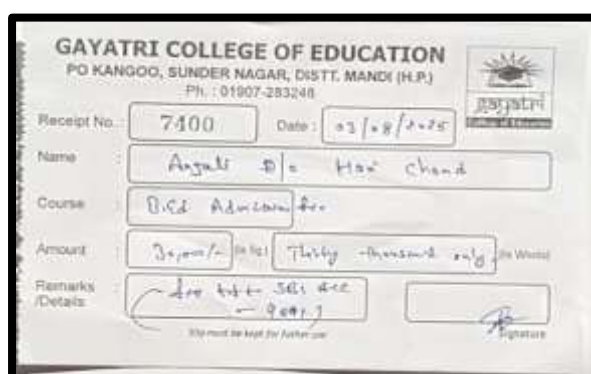 GAYATRI COLLEGE OF EDUCATION
PO KANGOO, SUNDER NAGAR, DISTT. MANDI (H.P.)
Ph. : 01907-283248
gayatri
College of Education
Receipt No. : 7400 Date : 03/08/2025
Name : Anjali D/o Hari Chand
Course : B.Ed Admission fee
Amount : 30,000/- (In fig.) Thirty thousand only (In Words)
Remarks /Details :
Slip must be kept for further use
Signature